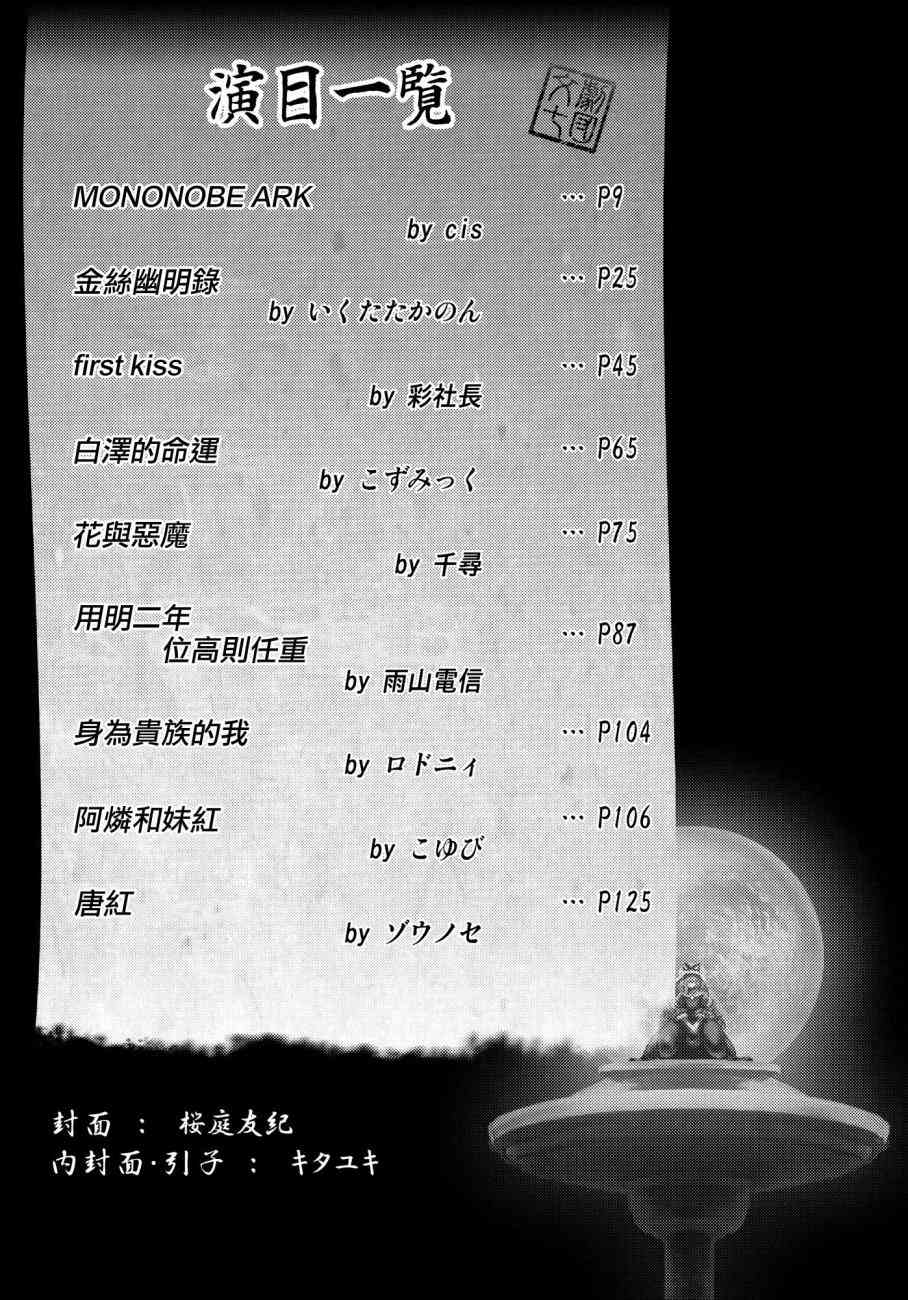 演目一覧
劇団文七
MONONOBE ARK … P9
by cis
金絲幽明錄 … P25
by いくたたかのん
first kiss … P45
by 彩社長
白澤的命運 … P65
by こずみっく
花與惡魔 … P75
by 千尋
用明二年
位高則任重 … P87
by 雨山電信
身為貴族的我 … P104
by ロドニィ
阿燐和妹紅 … P106
by こゆび
唐紅 … P125
by ゾウノセ
封面 : 桜庭友紀
内封面·引子 : キタユキ